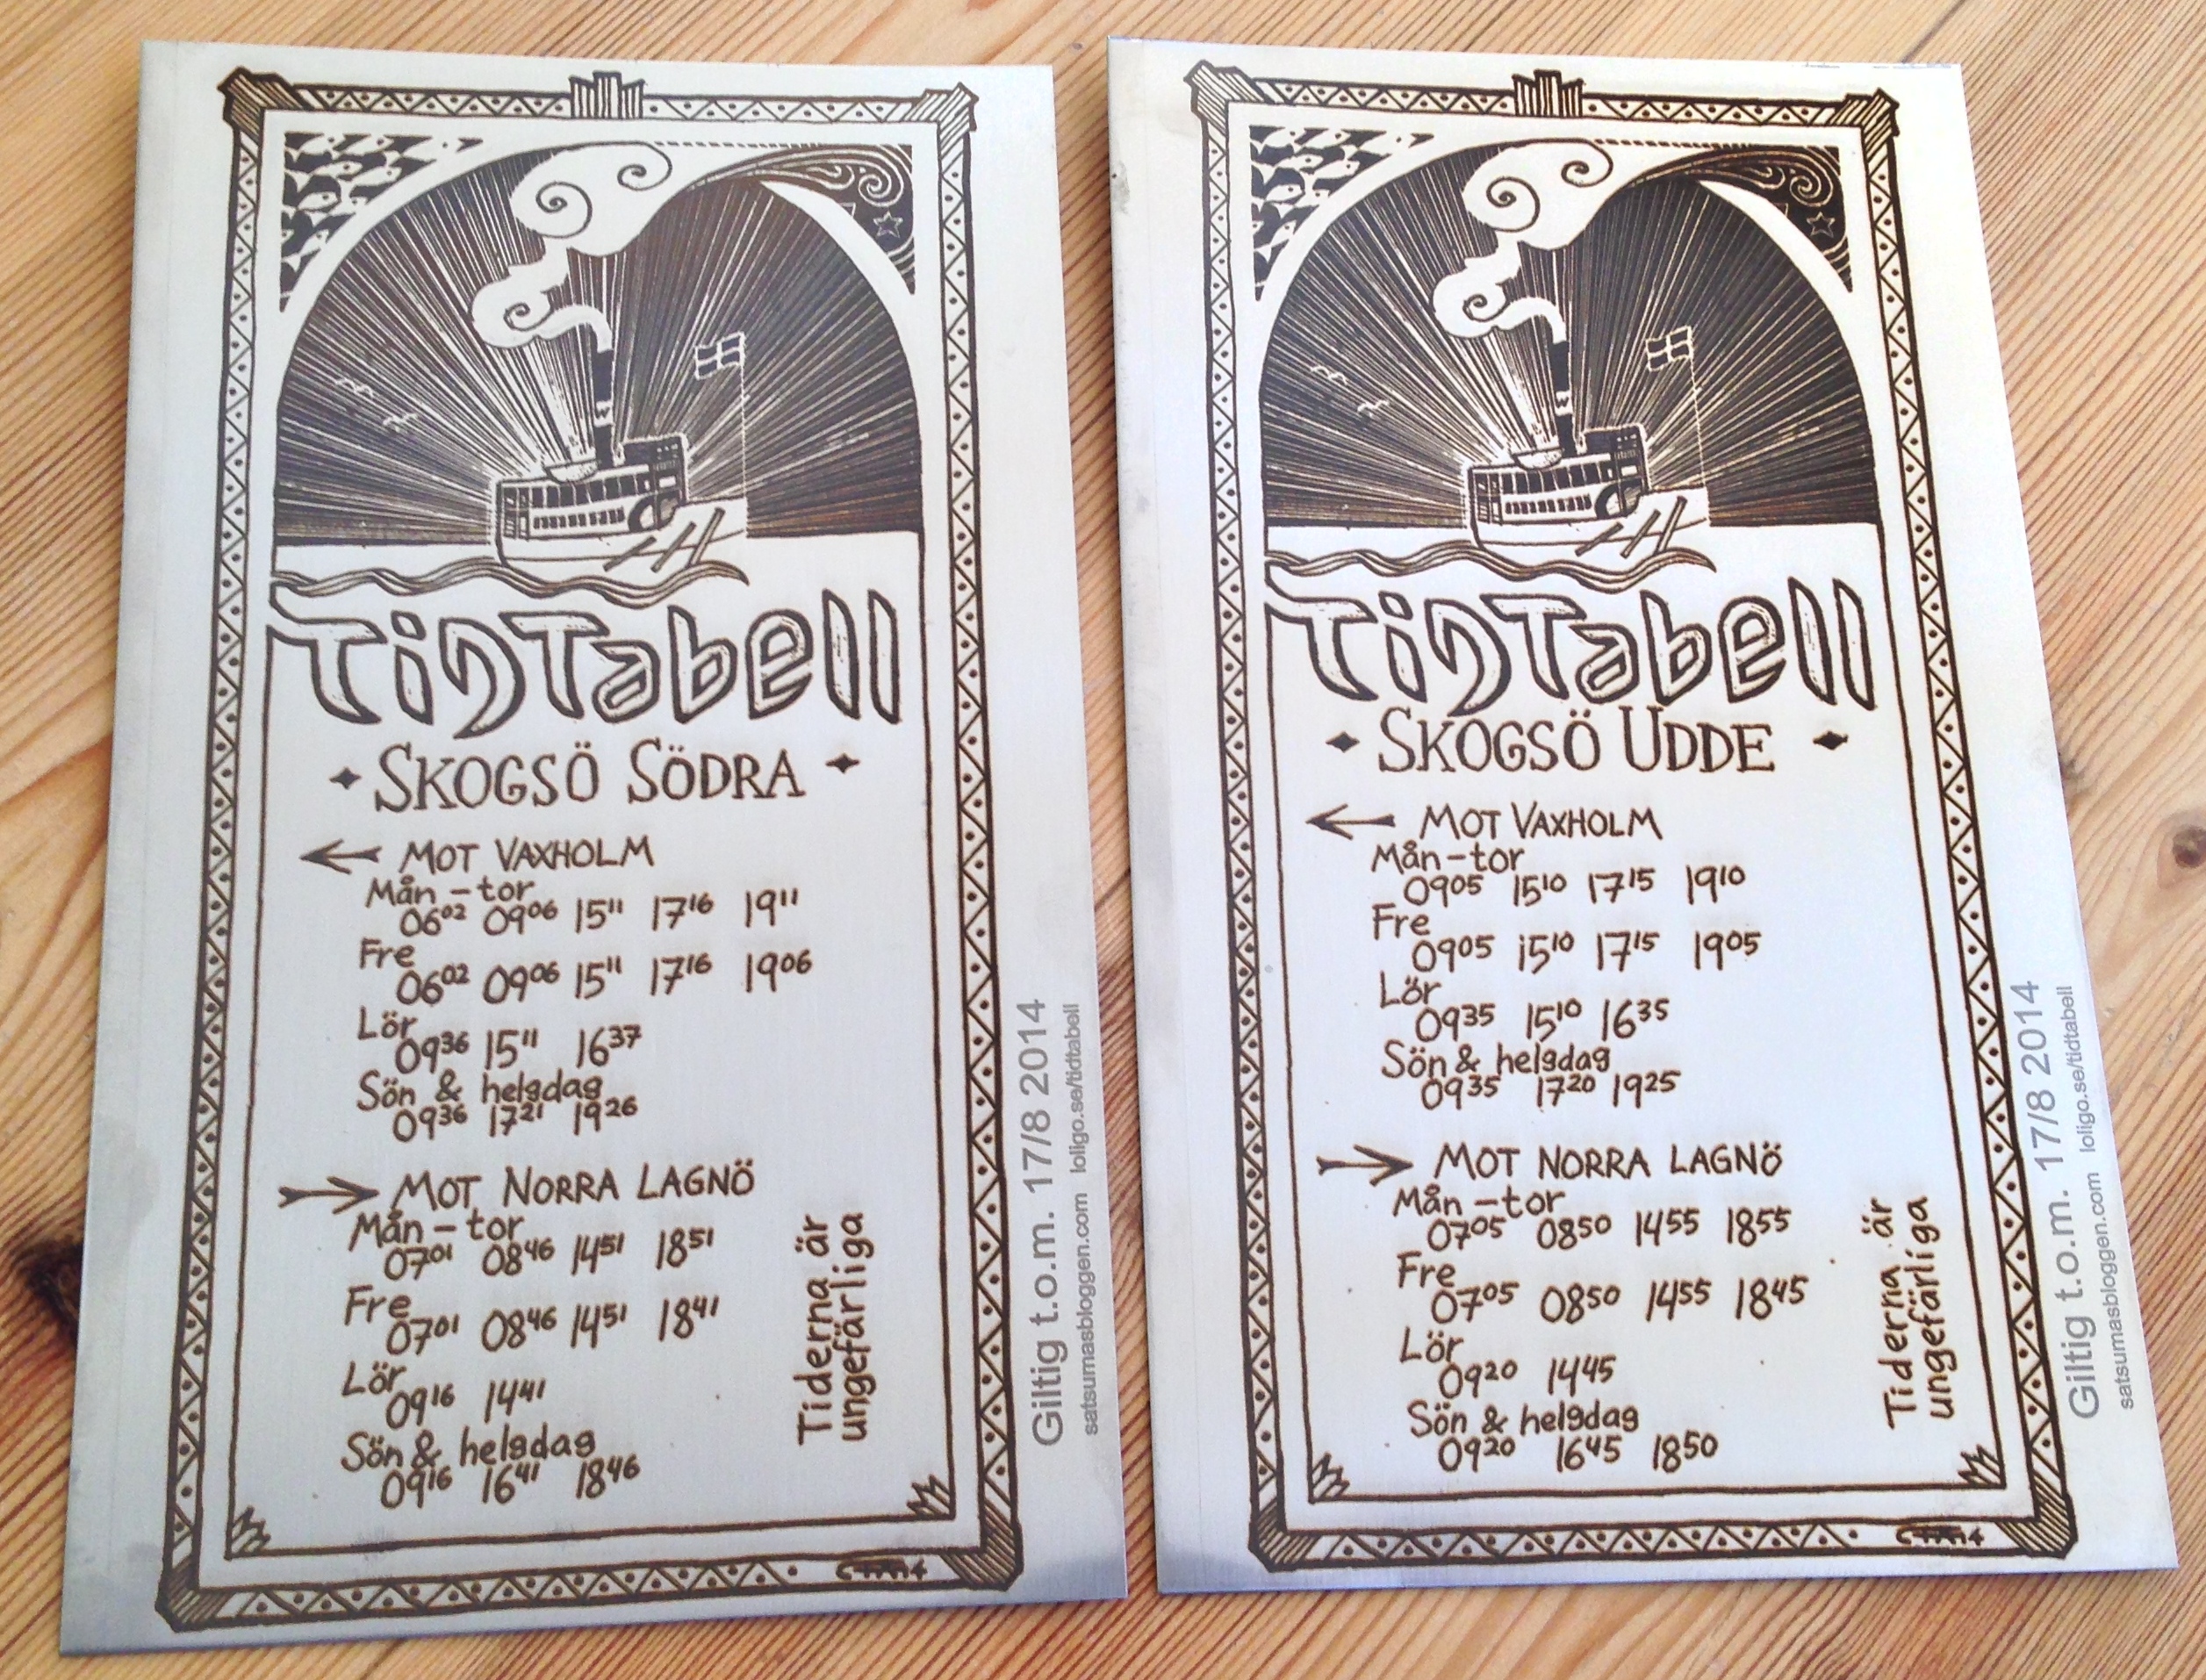 TidTabell
SKOGSÖ SÖDRA
MOT VAXHOLM
Mån-tor
06⁰² 09⁰⁶ 15¹¹ 17¹⁶ 19¹¹
Fre
06⁰² 09⁰⁶ 15¹¹ 17¹⁶ 19⁰⁶
Lör
09³⁶ 15¹¹ 16³⁷
Sön & helgdag
09³⁶ 17²¹ 19²⁶
MOT NORRA LAGNÖ
Mån-tor
07⁰¹ 08⁴⁶ 14⁵¹ 18⁵¹
Fre
07⁰¹ 08⁴⁶ 14⁵¹ 18⁴¹
Lör
09¹⁶ 14⁴¹
Sön & helgdag
09¹⁶ 16⁴¹ 18⁴⁶
Tiderna är
ungefärliga
Giltig t.o.m. 17/8 2014
satsumasbloggen.com loligo.se/tidtabell
TidTabell
SKOGSÖ UDDE
MOT VAXHOLM
Mån-tor
09⁰⁵ 15¹⁰ 17¹⁵ 19¹⁰
Fre
09⁰⁵ 15¹⁰ 17¹⁵ 19⁰⁵
Lör
09³⁵ 15¹⁰ 16³⁵
Sön & helgdag
09³⁵ 17²⁰ 19²⁵
MOT NORRA LAGNÖ
Mån-tor
07⁰⁵ 08⁵⁰ 14⁵⁵ 18⁵⁵
Fre
07⁰⁵ 08⁵⁰ 14⁵⁵ 18⁴⁵
Lör
09²⁰ 14⁴⁵
Sön & helgdag
09²⁰ 16⁴⁵ 18⁵⁰
Tiderna är
ungefärliga
Giltig t.o.m. 17/8 2014
satsumasbloggen.com loligo.se/tidtabell